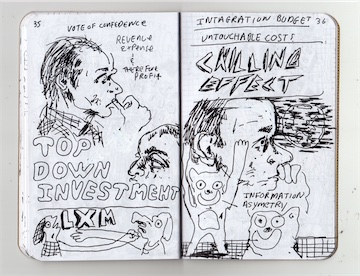 35
VOTE OF CONFIDENCE
REVENUE
EXPENSE
&
THEREFORE
PROFIT
TOP
DOWN
INVESTMENT
LXM
INTAGRATION BUDGET 36
UNTOUCHABLE COSTS
CHILLING
EFFECT
INFORMATION
ASYMETRY